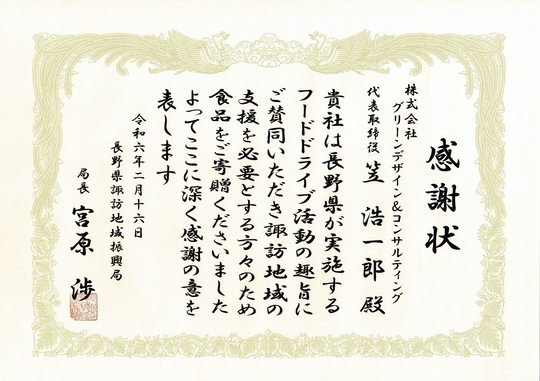 感謝状
株式会社
グリーンデザイン&コンサルティング
代表取締役 笠 浩一郎 殿
貴社は長野県が実施する
フードドライブ活動の趣旨に
ご賛同いただき諏訪地域の
支援を必要とする方々のため
食品をご寄贈くださいました
よってここに深く感謝の意を
表します
令和六年二月十六日
長野県諏訪地域振興局
局長 宮原 渉